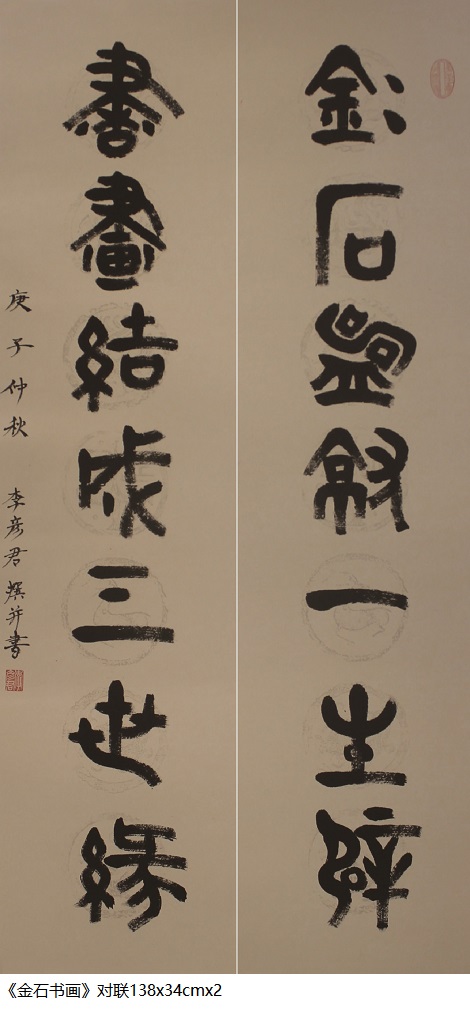 金石一生辟
書畫結成三世緣
庚子仲秋 李彦君撰并書
《金石书画》对联138x34cmx2